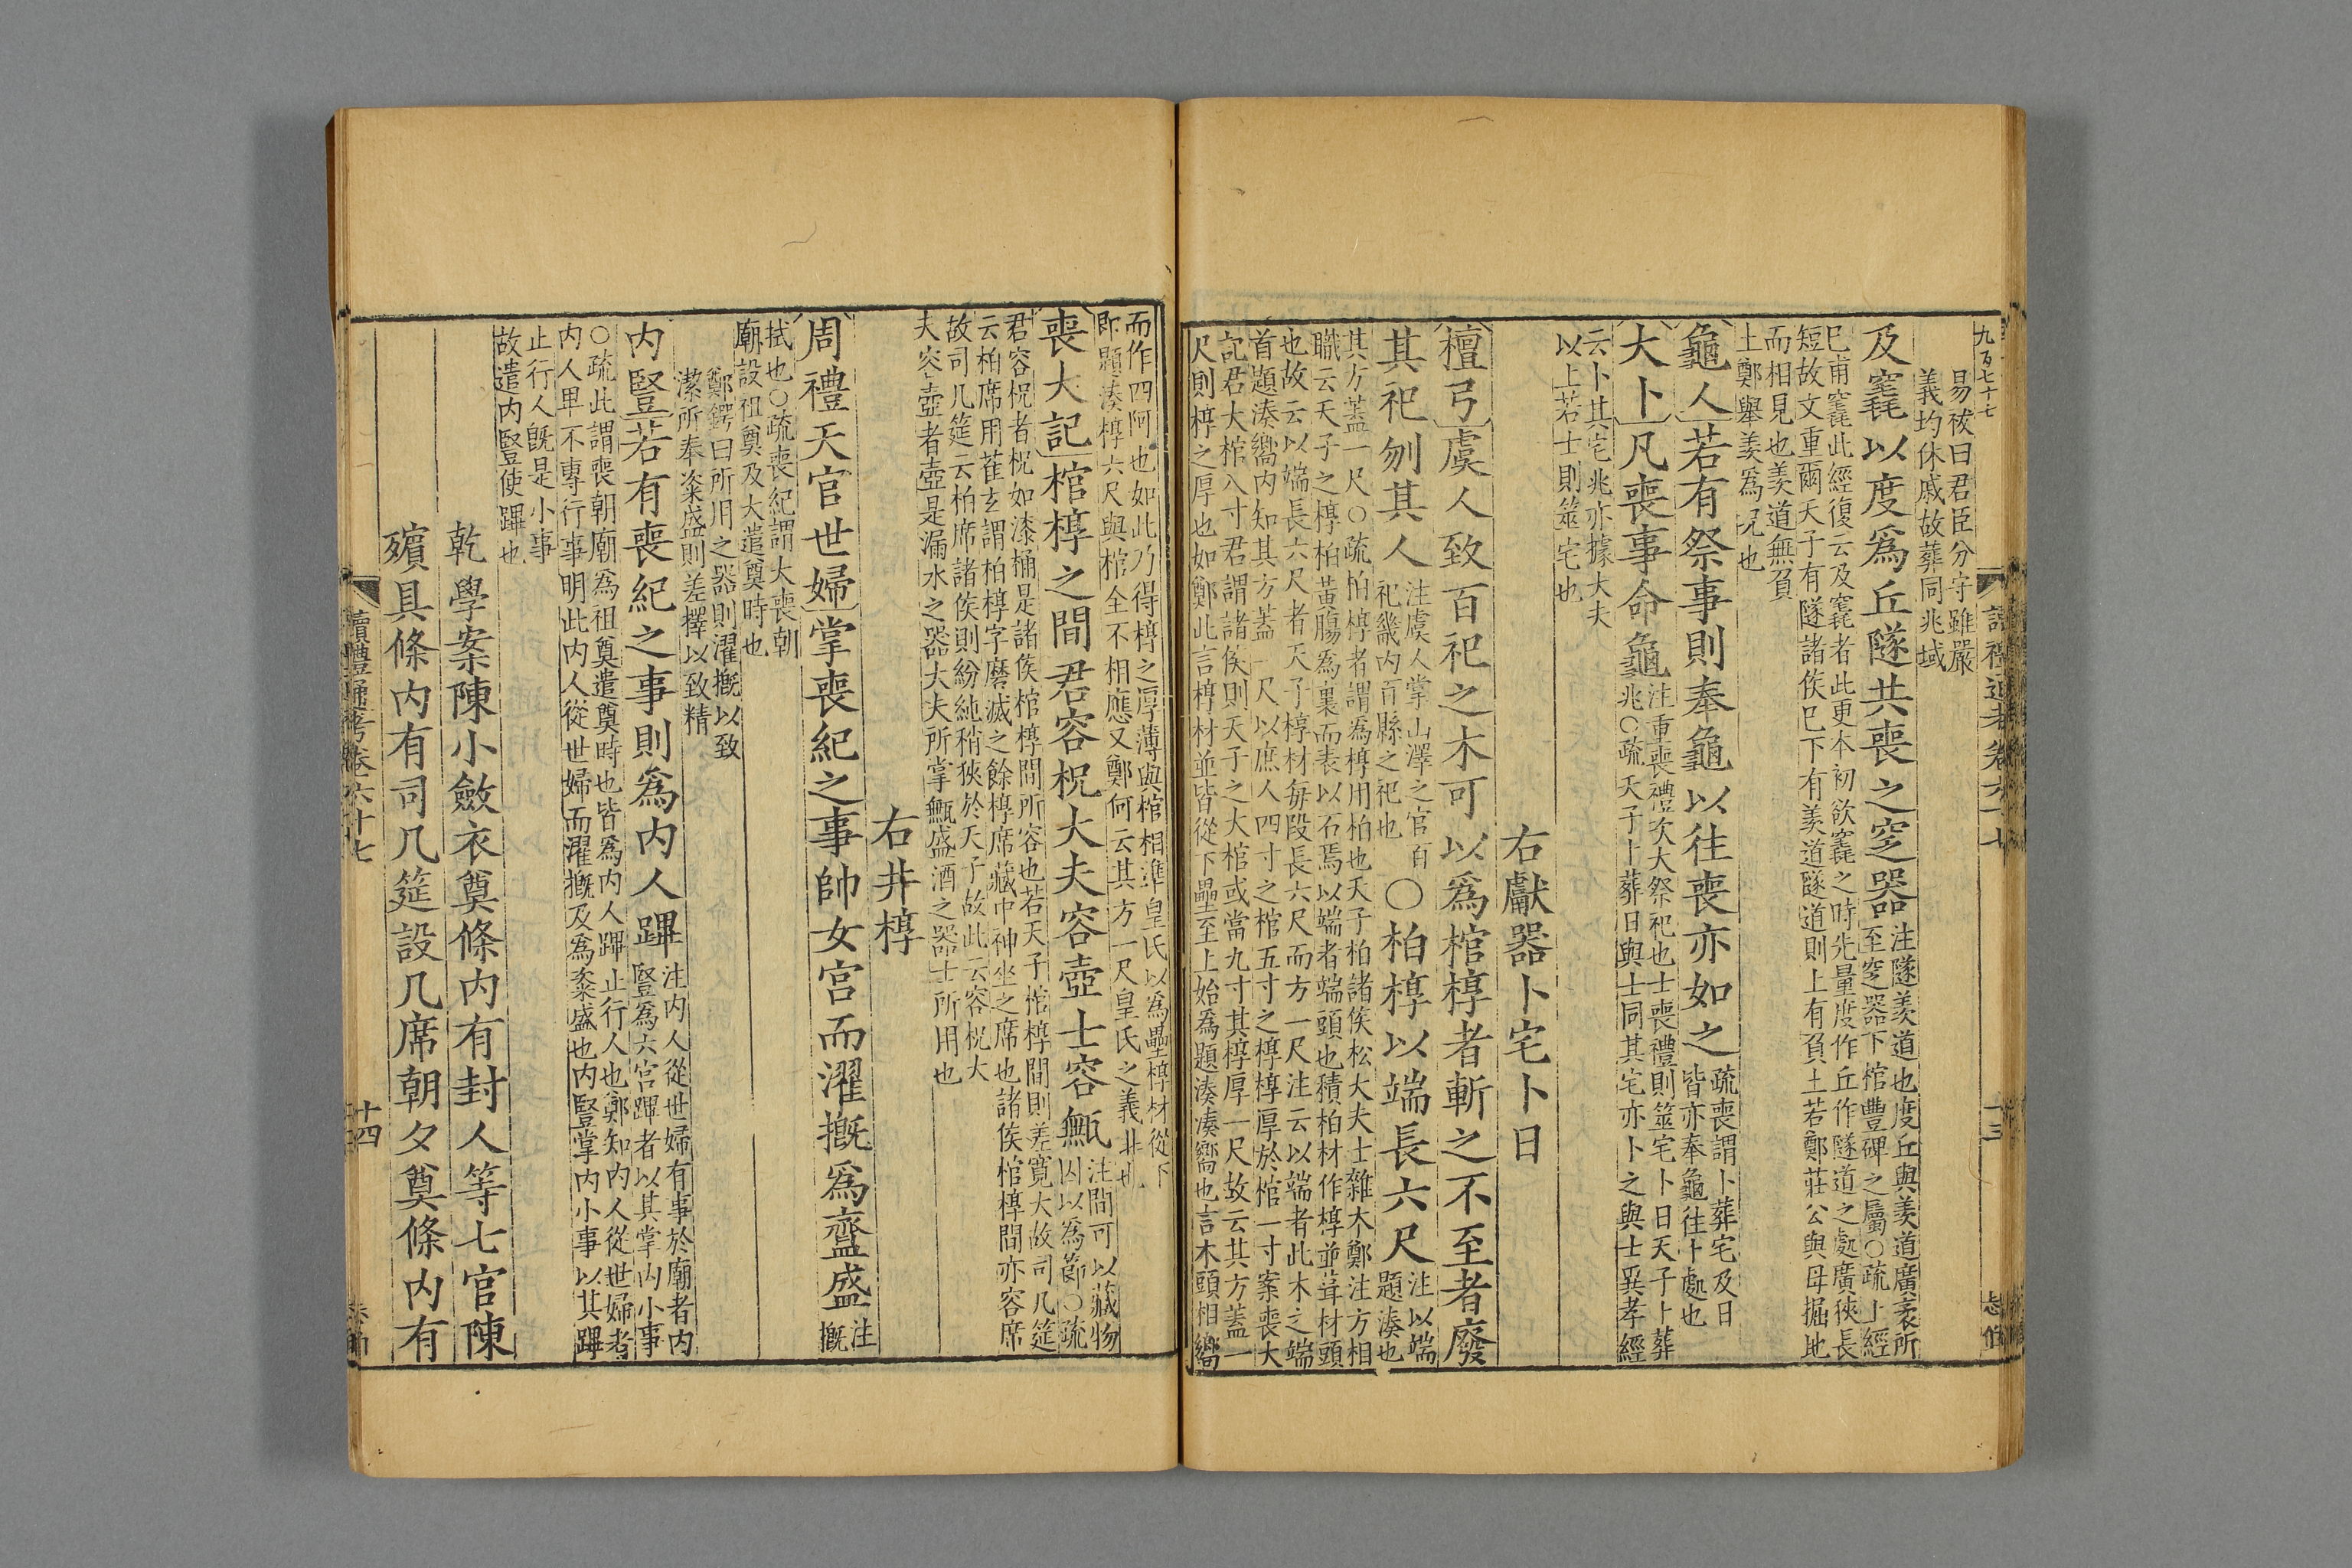 九百七十七
讀禮通考卷六十七
十三
易祓曰君臣分守雖嚴
義均休戚故葬同兆域
及竁以度爲丘隧共喪之窆器
注隧羡道也度丘與羡道廣袤所
至窆器下棺豐碑之屬○疏上經
已甫竁此經復云及竁者此更本初欲竁之時先量度作丘作隧道之處廣狹長
短故文重爾天子有隧諸侯已下有羨道隧道則上有負土若鄭莊公與母掘地
而相見也羡道無負
土鄭舉羨爲况也
龜人若有祭事則奉龜以往喪亦如之
疏喪謂卜葬宅及日
皆亦奉龜往卜處也
大卜凡喪事命龜
注重喪禮次大祭祀也士喪禮則筮宅卜日天子卜葬
兆○疏天子卜葬日與士同其宅亦卜之與士異孝經
云卜其宅兆亦據大夫
以上若士則筮宅也
右獻器卜宅卜日
檀弓虞人致百祀之木可以爲棺椁者斬之不至者廢
其祀刎其人
注虞人掌山澤之官百
祀畿内百縣之祀也
○柏椁以端長六尺
注以端
題湊也
其方蓋一尺○疏柏椁者謂爲椁用柏也天子柏諸侯松大夫士雜木鄭注方相
職云天子之椁柏黃腸爲裏而表以石焉以端者端頭也積柏材作椁並葺材頭
也故云以端長六尺者天子椁材每段長六尺而方一尺注云以端者此木之端
首題湊嚮内知其方蓋一尺以庶人四寸之棺五寸之椁椁厚於棺一寸案喪大
記君大棺八寸君謂諸侯則天子之大棺或當九寸其椁厚一尺故云其方蓋一
尺則椁之厚也如鄭此言椁材並皆從下壘至上始爲題湊湊嚮也言木頭相嚮
而作四阿也如此乃得椁之厚薄與棺相準皇氏以爲壘椁材從下
即題湊椁六尺與棺全不相應又鄭何云其方一尺皇氏之義非也
喪大記棺椁之間君容柷大夫容壺士容甒
注間可以藏物
因以爲節○疏
君容柷者柷如漆桶是諸侯棺椁間所容也若天子棺椁間則差寬大故司几筵
云柏席用萑玄謂柏椁字磨滅之餘椁席藏中神坐之席也諸侯棺椁間亦容席
故司几筵云柏席諸侯則紛純稍狹於天子故此云容柷大
夫容壺者壺是漏水之器大夫所掌甒盛酒之器士所用也
右井椁
周禮天官世婦掌喪紀之事帥女宮而濯摡爲齍盛
注
摡
拭也○疏喪紀謂大喪朝
廟設祖奠及大遣奠時也
鄭鍔曰所用之器則濯摡以致
潔所奉粢盛則差擇以致精
内豎若有喪紀之事則爲内人蹕
注内人從世婦有事於廟者内
豎爲六宮蹕者以其掌内小事
○疏此謂喪朝廟爲祖奠遣奠時也皆爲内人蹕止行人也鄭知内人從世婦者
内人卑不專行事明此内人從世婦而濯摡及爲粢盛也内豎掌内小事以其蹕
止行人旣是小事
故遣内豎使蹕也
乾學案陳小斂衣奠條内有封人等七官陳
殯具條内有司几筵設几席朝夕奠條内有
讀禮通考卷六十七
十四